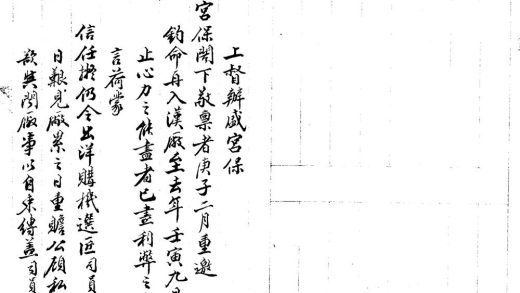 上督辦盛宮保
宮保閣下敬稟者庚子二月重邀
鈞命再入漢廠至去年壬寅九月
止心力之能盡者已盡利弊之
言荷蒙
信任擬仍令出洋購機選匠司員
日艱見廠累之日重瞻公顧私
歉與閱廠事以自束縛蓋司員